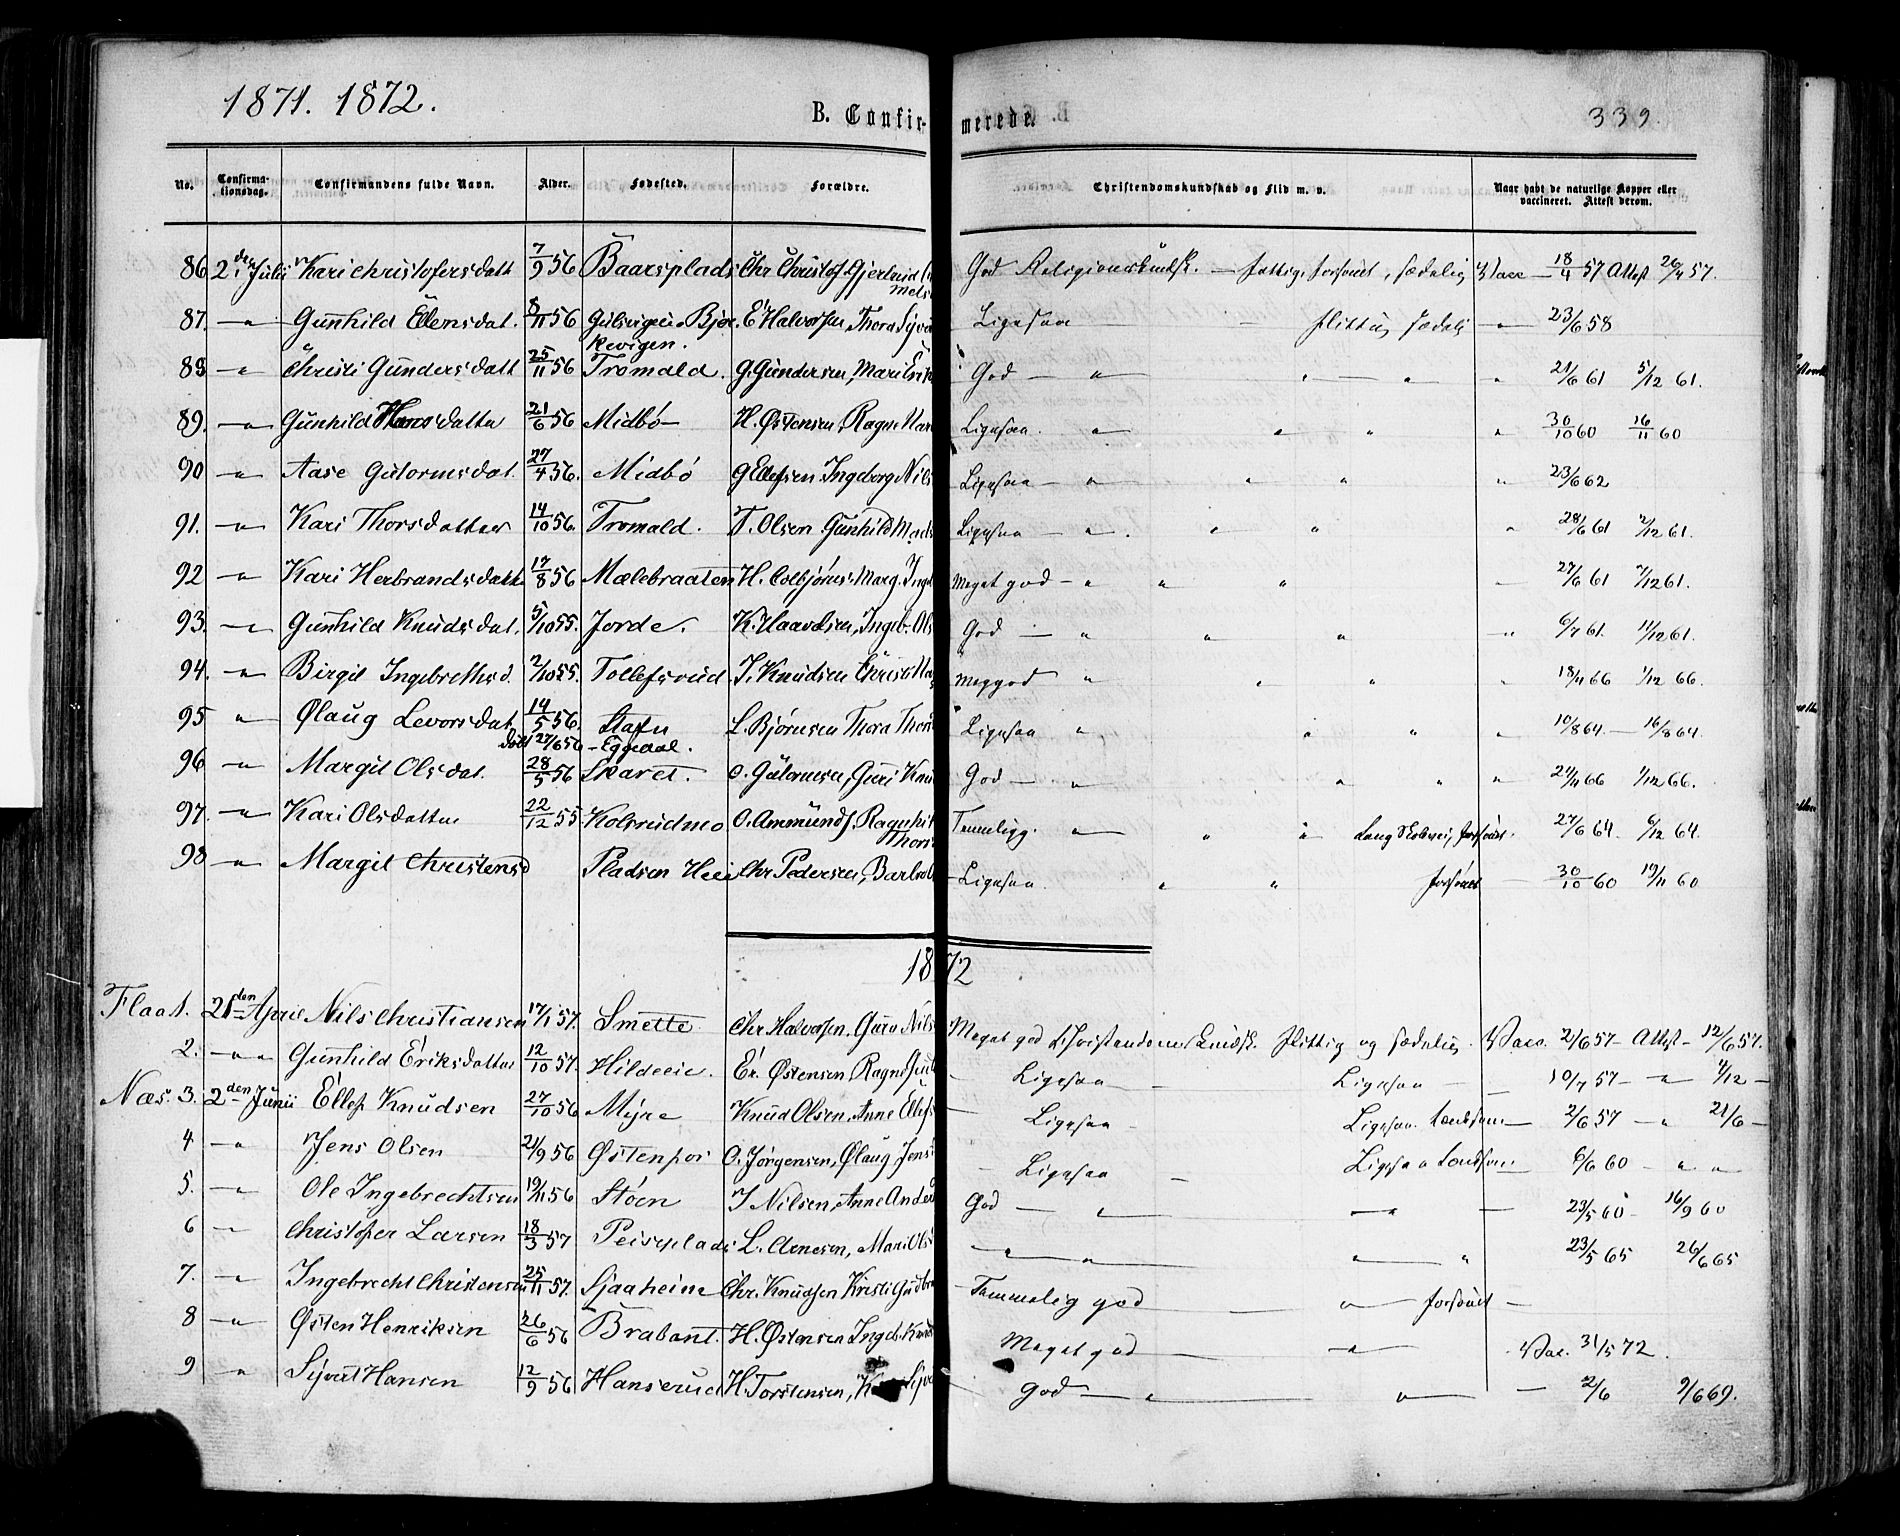 1871. 1872.
B. Confirmerede. 339.
No. Confirmationsdag. Confirmandens fulde Navn. Alder. Fødested. Forældre. Christendomskundskab og Flid m. v. Naar havt de naturlige Kopper eller vaccineret. Attest derom.
86 2den Juli Kari Christofersdatt 7/9 56 Baarsplads Chr Christof Gjertrud God Religionskundsk. — fattig, forsømt, sædelig Vacc — 18/4 57 Attest 26/4 57.
87. — " Gunhild Ellensdat. 8/11 56 Gulsvigeie Bjør E Halvorsen, Thora Syve Ligesaa — flittig sædeli — 23/6 58
kevigen.
88 — " Christi Gundersdatt 25/11 56 Tromald. G. Gundersen, Mari Erik God — " " — " " 21/6 61 5/12 61.
89. — " Gunhild Hansdatter 21/6 56 Midbø — H. Østensen, Ragne Nar Ligesaa. " " " " 30/10 60 16/11 60
90 — " Aase Gutormsdat. 27/4 56. Midbø G Ellefsen Ingeborg Nils Ligesaa — " " " " 23/6 62
91. — " Kari Thorsdatter 14/10 56. Tromald. T. Olsen. Gunhild Mads Ligesaa — " " " " 28/6 61 2/12 61.
92 — " Kari Herbrandsdatt 17/8 56 Mælebraaten H. Colbjørns. Marg. Inge Meget god — " " " — 27/6 61 7/12 61.
93. — " Gunhild Knudsdat. 5/10 55. Jorde. K. Haavelsen, Ingeb. Ols God — " " " — " 6/7 61. 11/12 61.
94. — " Birgit Ingebrethsd. 2/10 55. Tollefsrud I. Knudsen Christi Ha Meg god " " " " 18/11 66 1/12 66.
95 — " Ølaug Levorsdat. 14/5 56. Stafn L. Bjørnsen Thora Thor Ligesaa " " " " 10/8 64. — 16/8 64.
døbt 27/6 56 — Eggedal.
96 — " Margit Olsdat. 28/5 56 Skaret. O. Gutormsen, Guri Knu God — " " " " 24/11 66 1/12 66.
97. — " Kari Olsdatter 22/12 55 Kolsrudmo O. Ammunds. Ragnhil Temmelig g. " " " Lang Skolevei, forsømt. 27/6 64. 6/12 64.
Thors
98 — " Margit Christensd Pladsen Heie Chr Pedersen, Barbro — Ligesaa. " " forsømt — 30/10 60 19/11 60
1872
Flaa 1. 21den April Nils Christiansen 17/1 57. Smette Chr Halvorsen. Guro Nils Meget god Christendomskundsk. flittig og sædelig. Vacc. 2/6 57 — Attest — 12/6 57.
2. — " " Gunhild Eriksdatter 12/10 57. Hildeeie. Er. Østensen, Ragne Gul — Ligesaa — Ligesaa — 10/7 57 — " 4/12 —
Næs. 3. 2den Junii Ellef Knudsen 27/10 56 Myre Knud Olsen, Anne Ellefs — Ligesaa — Ligesaa. — 2/6 57 — " 21/6 —
4 — " Jens Olsen 21/9 56 Østenfor O. Jørgensen, Ølaug Jens — Ligesaa — Ligesaa — 6/6 60 — " "
5. — " Ole Ingebrechtsen 19/11 56 Støen I Nilsen, Anne Ander God — " — " — 23/5 60 — 16/9 60
6 — " Christofer Larsen 18/3 57 Peiseplads L. Arnesen, Mari Ols — " — " " " 23/5 65 26/6 65
7. — " Ingebrecht Christensen 25/11 57. Sjaaheim Chr. Knudsen Kristi Gudbr — Temmelig god — " forsømt —
8 — " Østen Henriksen 26/6 56 Brabant. H. Østensen Ingeb. Knud Meget god — " — Vac. 31/5 72.
9 — " Syvert Hansen 12/9 56 Hanserud H. Torstensen, Syve God — " — " — 2/6 9/6 69.